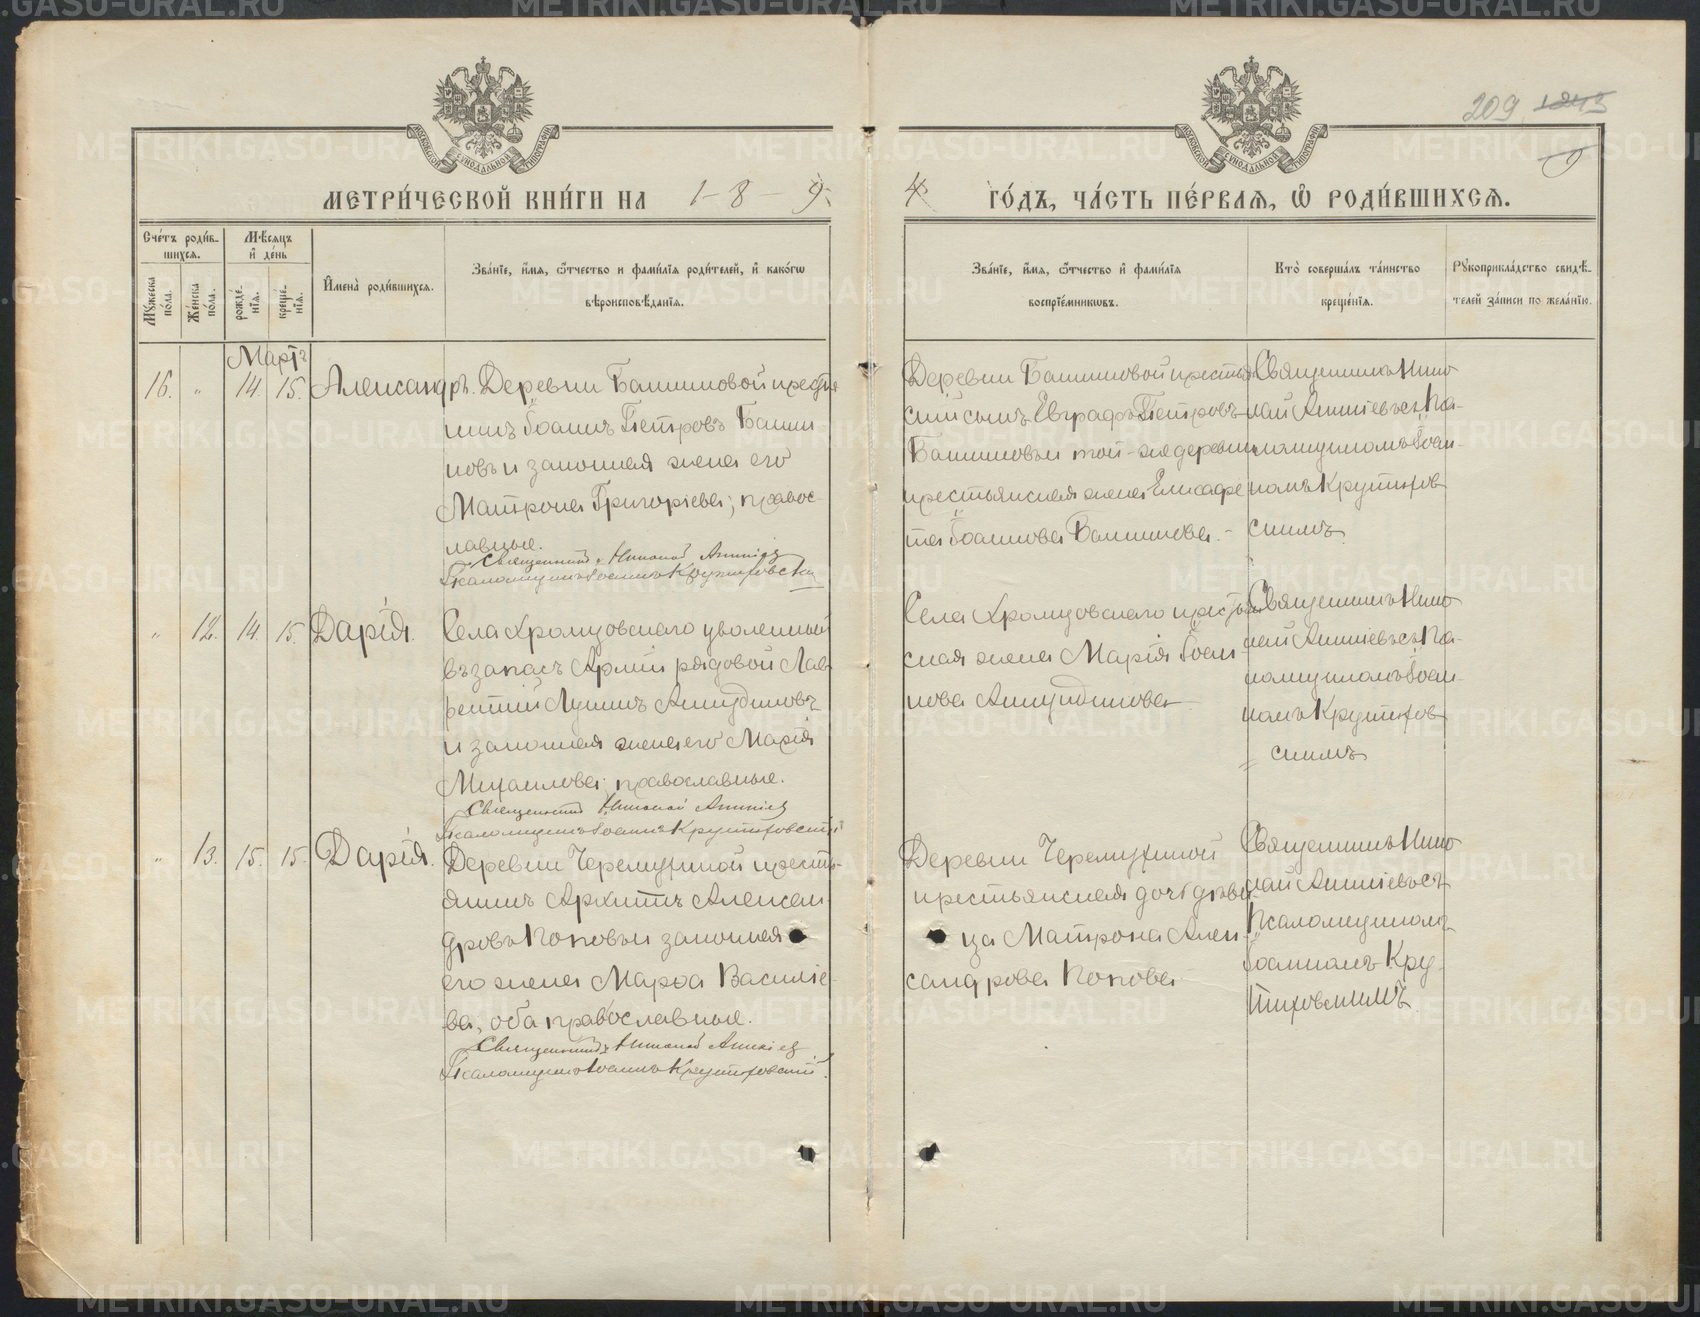 209 1243
9
МЕТРИ́ЧЕСКОЙ КНИ́ГИ НА 1-8-9-
4 ГО́ДЪ, ЧА́СТЬ ПЕ́РВАѦ, Ѡ҆ РОДИ́ВШИХСѦ.
Сче́тъ роди́в-
шихся.
Мѣ́сяцъ
и҆ де́нь
Му́жеска
по́ла.
Же́нска
по́ла.
рожде́-
нїѧ.
креще́-
нїѧ.
И҆мена̀ роди́вшихсѧ.
Зва́нїе, и҆́мѧ, ѻ҆́тчество и фами́лїѧ роди́телей, и҆ како́гѡ
вѣроисповѣ́данїѧ.
Зва́нїе, и҆́мѧ, ѻ҆́тчество и҆ фами́лїѧ
воспрїе́мникѡвъ.
Кто̀ соверша́лъ та́инство
креще́нїѧ.
Рꙋкоприкла́дство свидѣ́-
телей за́писи по жела́нїю.
Мартъ
16. " 14. 15. Александръ. Деревни Башиновой крестья
нинъ Іоаннъ Петровъ Баши
новъ и законная жена его
Матрона Григоріева; правос-
лавные.
Священникъ Николай
Псаломщикъ Іоаннъ Крутиховскій
Деревни Башиновой крестьян
скій сынъ Евграфъ Петровъ
Башиновъ и той-же деревни
крестьянская жена Елисаве
та Іоаннова Башинова.-
Священникъ Нико
лай съ Пса-
ломщикомъ Іоан-
номъ Крутихов
скимъ
" 12. 14. 15. Дарія. Села Хромцовскаго уволенный
въ запасъ Арміи рядовой Лав
рентій Лукинъ Анцудиновъ
и законная жена его Марія
Михаилова; православные.
Священникъ Николай
Псаломщикъ Іоаннъ Крутиховскій
Села Хромцовскаго крестьян
ская жена Марія Іоан
нова
Священникъ Нико
лай съ Пса-
ломщикомъ Іоан-
номъ Крутихов
= скимъ
" 13. 15. 15. Дарія. Деревни Черемухиной кресть-
янинъ Архипъ Алексан-
дровъ Поповъ и законная
его жена Марѳа Василіе-
ва, оба православные.
Священникъ Николай
Псаломщикъ Іоаннъ Крутиховскій.
Деревни Черемухиной
крестьянская дочь дѣви-
ца Матрона Алек-
сандрова Попова
Священникъ Нико
лай съ
Псаломщикомъ
Іоанномъ Кру-
тиховскимъ